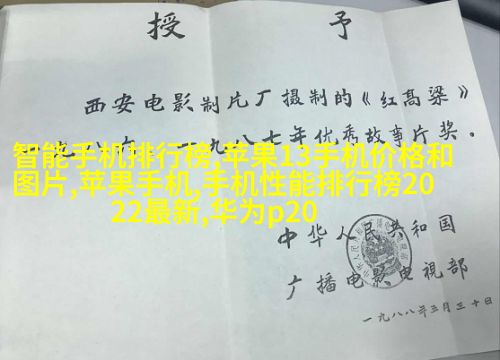 授 予
西安电影制片厂摄制的《红髙梁》
一九八七年优秀故事片奖。
智能手机排行榜,苹果13手机价格和
图片,苹果手机,手机性能排行榜20
22最新,华为p20
中华人民共和国
广播电影电視部
一九八八年三月三十日